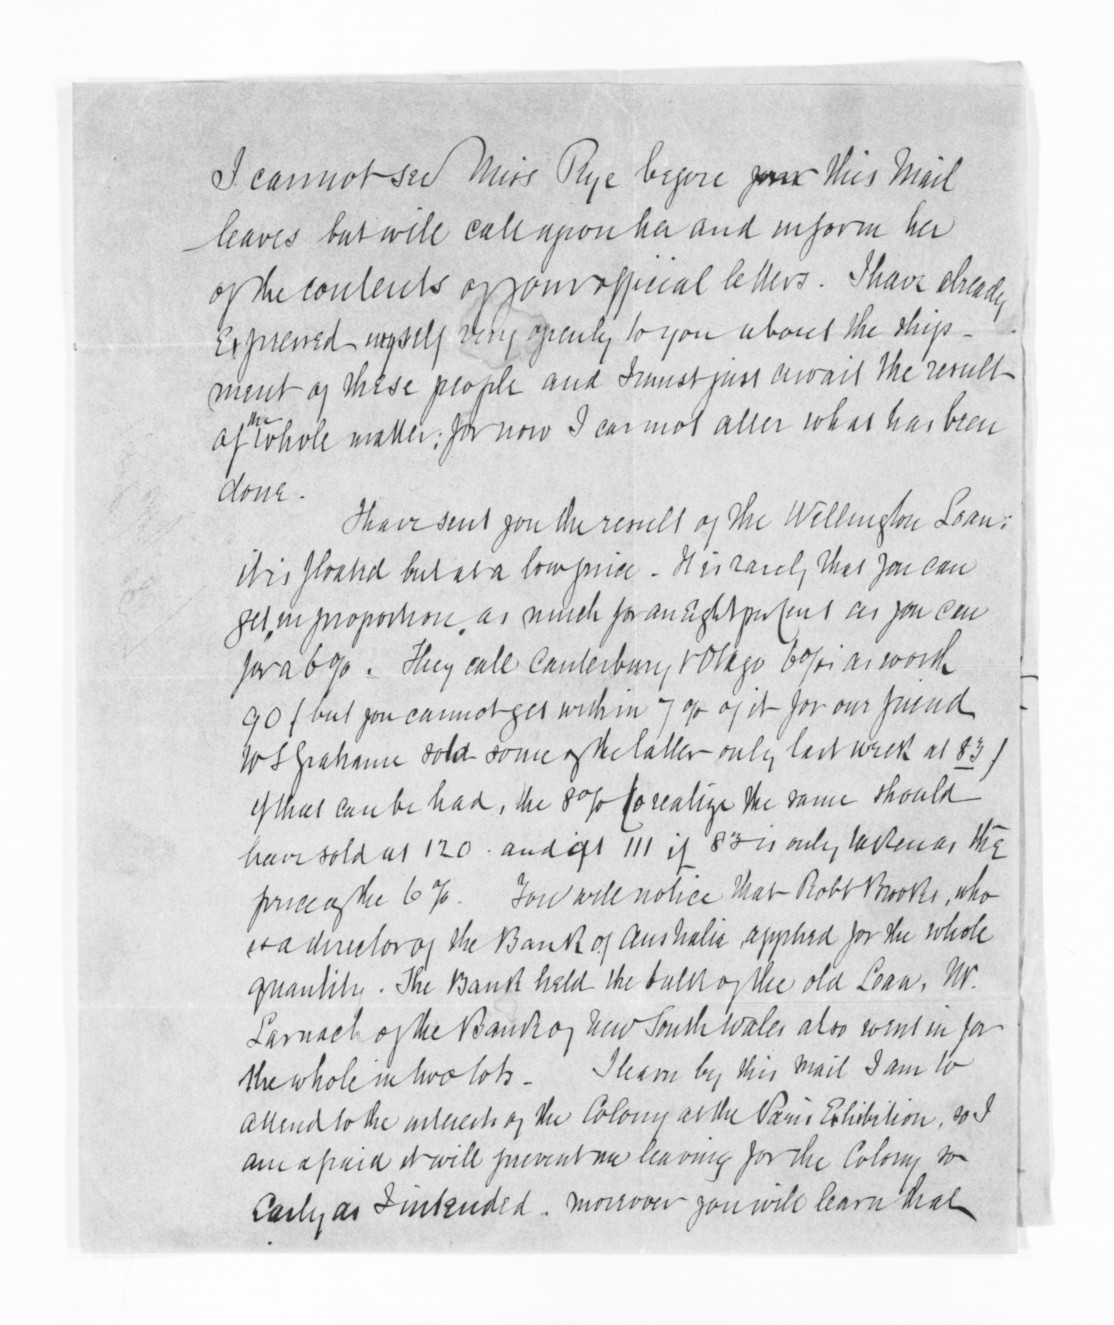 I cannot see Miss Rye before this Mail
leaves but will call upon her and inform her
of the contents of your official letters. I have already
Expressed myself very openly to you about the ship-
ment of these people and I must just await the result
of the whole matter; for now I cannot alter what has been
done.
I have sent you the result of the Wellington Loan:
it is floated but at a low price - It is rarely that you can
get "in proportion" as much for an Eight per Cent as you can
for a 6%. They call Canterbury & Otago 6%s as worth
90 (but you cannot get within 7% of it for our friend
W S Grahame sold some of the latter only last week at 83)
if that can be had, the 8% to realize the same should
have sold at 120 and at 111 if 83 is only taken as the
price of the 6%. You will notice that Robt Brooks, who
is a director of the Bank of Australia applied for the whole
quantity. The Bank held the bulk of the old Loan, Mr.
Larnach of the Bank of New South Wales also went in for
the whole in two lots - I learn by this Mail I am to
attend to the interests of the Colony at the Paris Exhibition, so I
am afraid it will prevent me leaving for the Colony so
Early as I intended. Moreover you will learn that